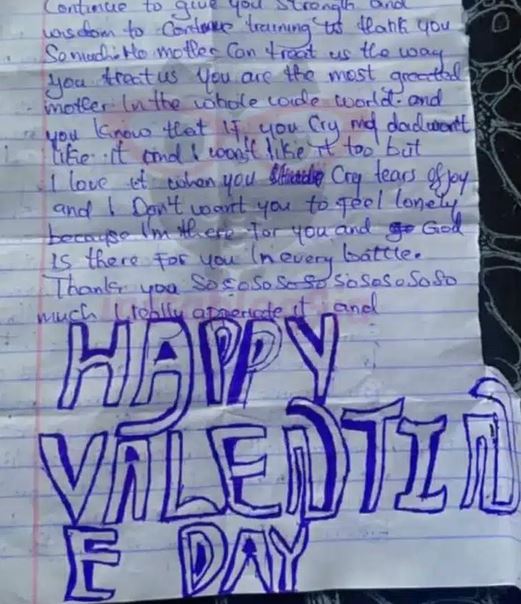 Continue to give you strength and
wisdom to Continue training us thank you
So much. No mother Can treat us the way
you treat us you are the most greatest
mother In the whole wide world. and
you know that If you Cry my dad won't
like it and I won't like it too but
I love it when you Cry tears of joy
and I Don't want you to feel lonely
because I'm there for you and God
Is there For you In every battle.
Thank you SoSoSoSoSoSoSoSoSoSo
much I really appreciate it and
HAPPY
VALENTIN
E DAY